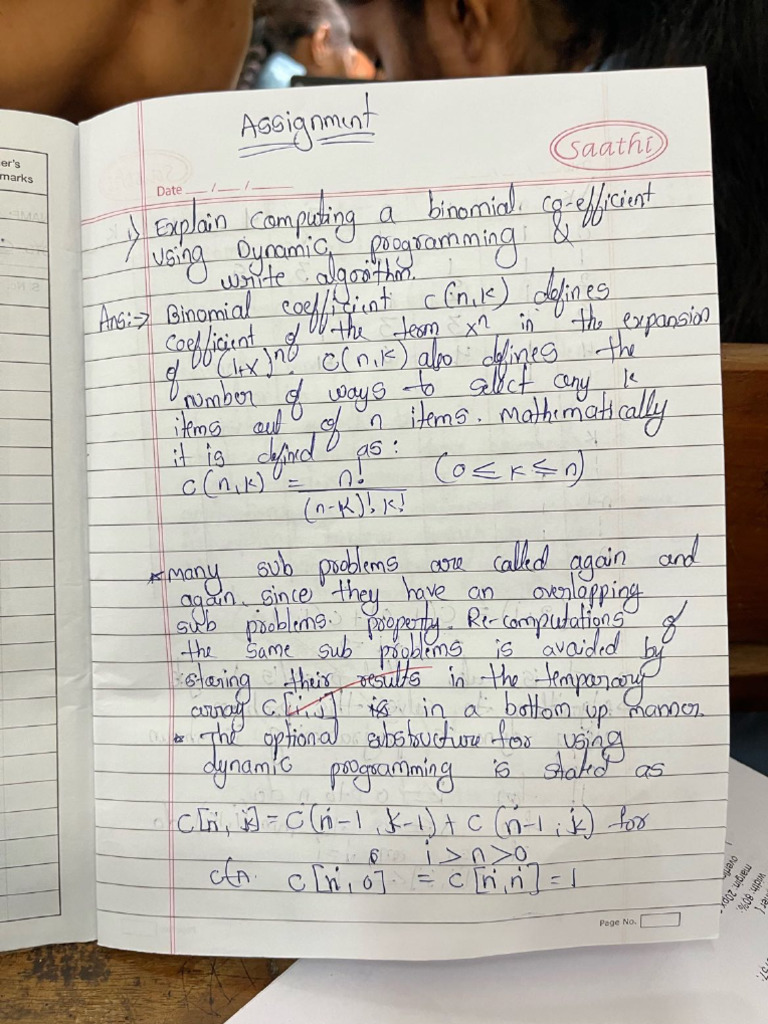 Assignment
Saathi
er's
marks
Date __/__/__
1) Explain computing a binomial co-efficient
using Dynamic programming &
write algorithm.
Ans:-> Binomial coefficient c(n,k) defines
coefficient of the term x^n in the expansion
of (1+x)^n. c(n,k) also defines the
number of ways to select any k
items out of n items. Mathematically
it is defined as:
c(n,k) = n! / (n-k)! k! (0 ≤ k ≤ n)
* many sub problems are called again and
again, since they have an overlapping
sub problems. property. Re-computations of
the same sub problems is avoided by
storing their results in the temporary
array c[i,j] is in a bottom up manner.
* The optional substructure for using
dynamic programming is stated as
c[n, k] = c(n-1, k-1) + c(n-1, k) for
i > n > 0
c[n, 0] = c[n, n] = 1
Page No.
width 80%;
margin 20px